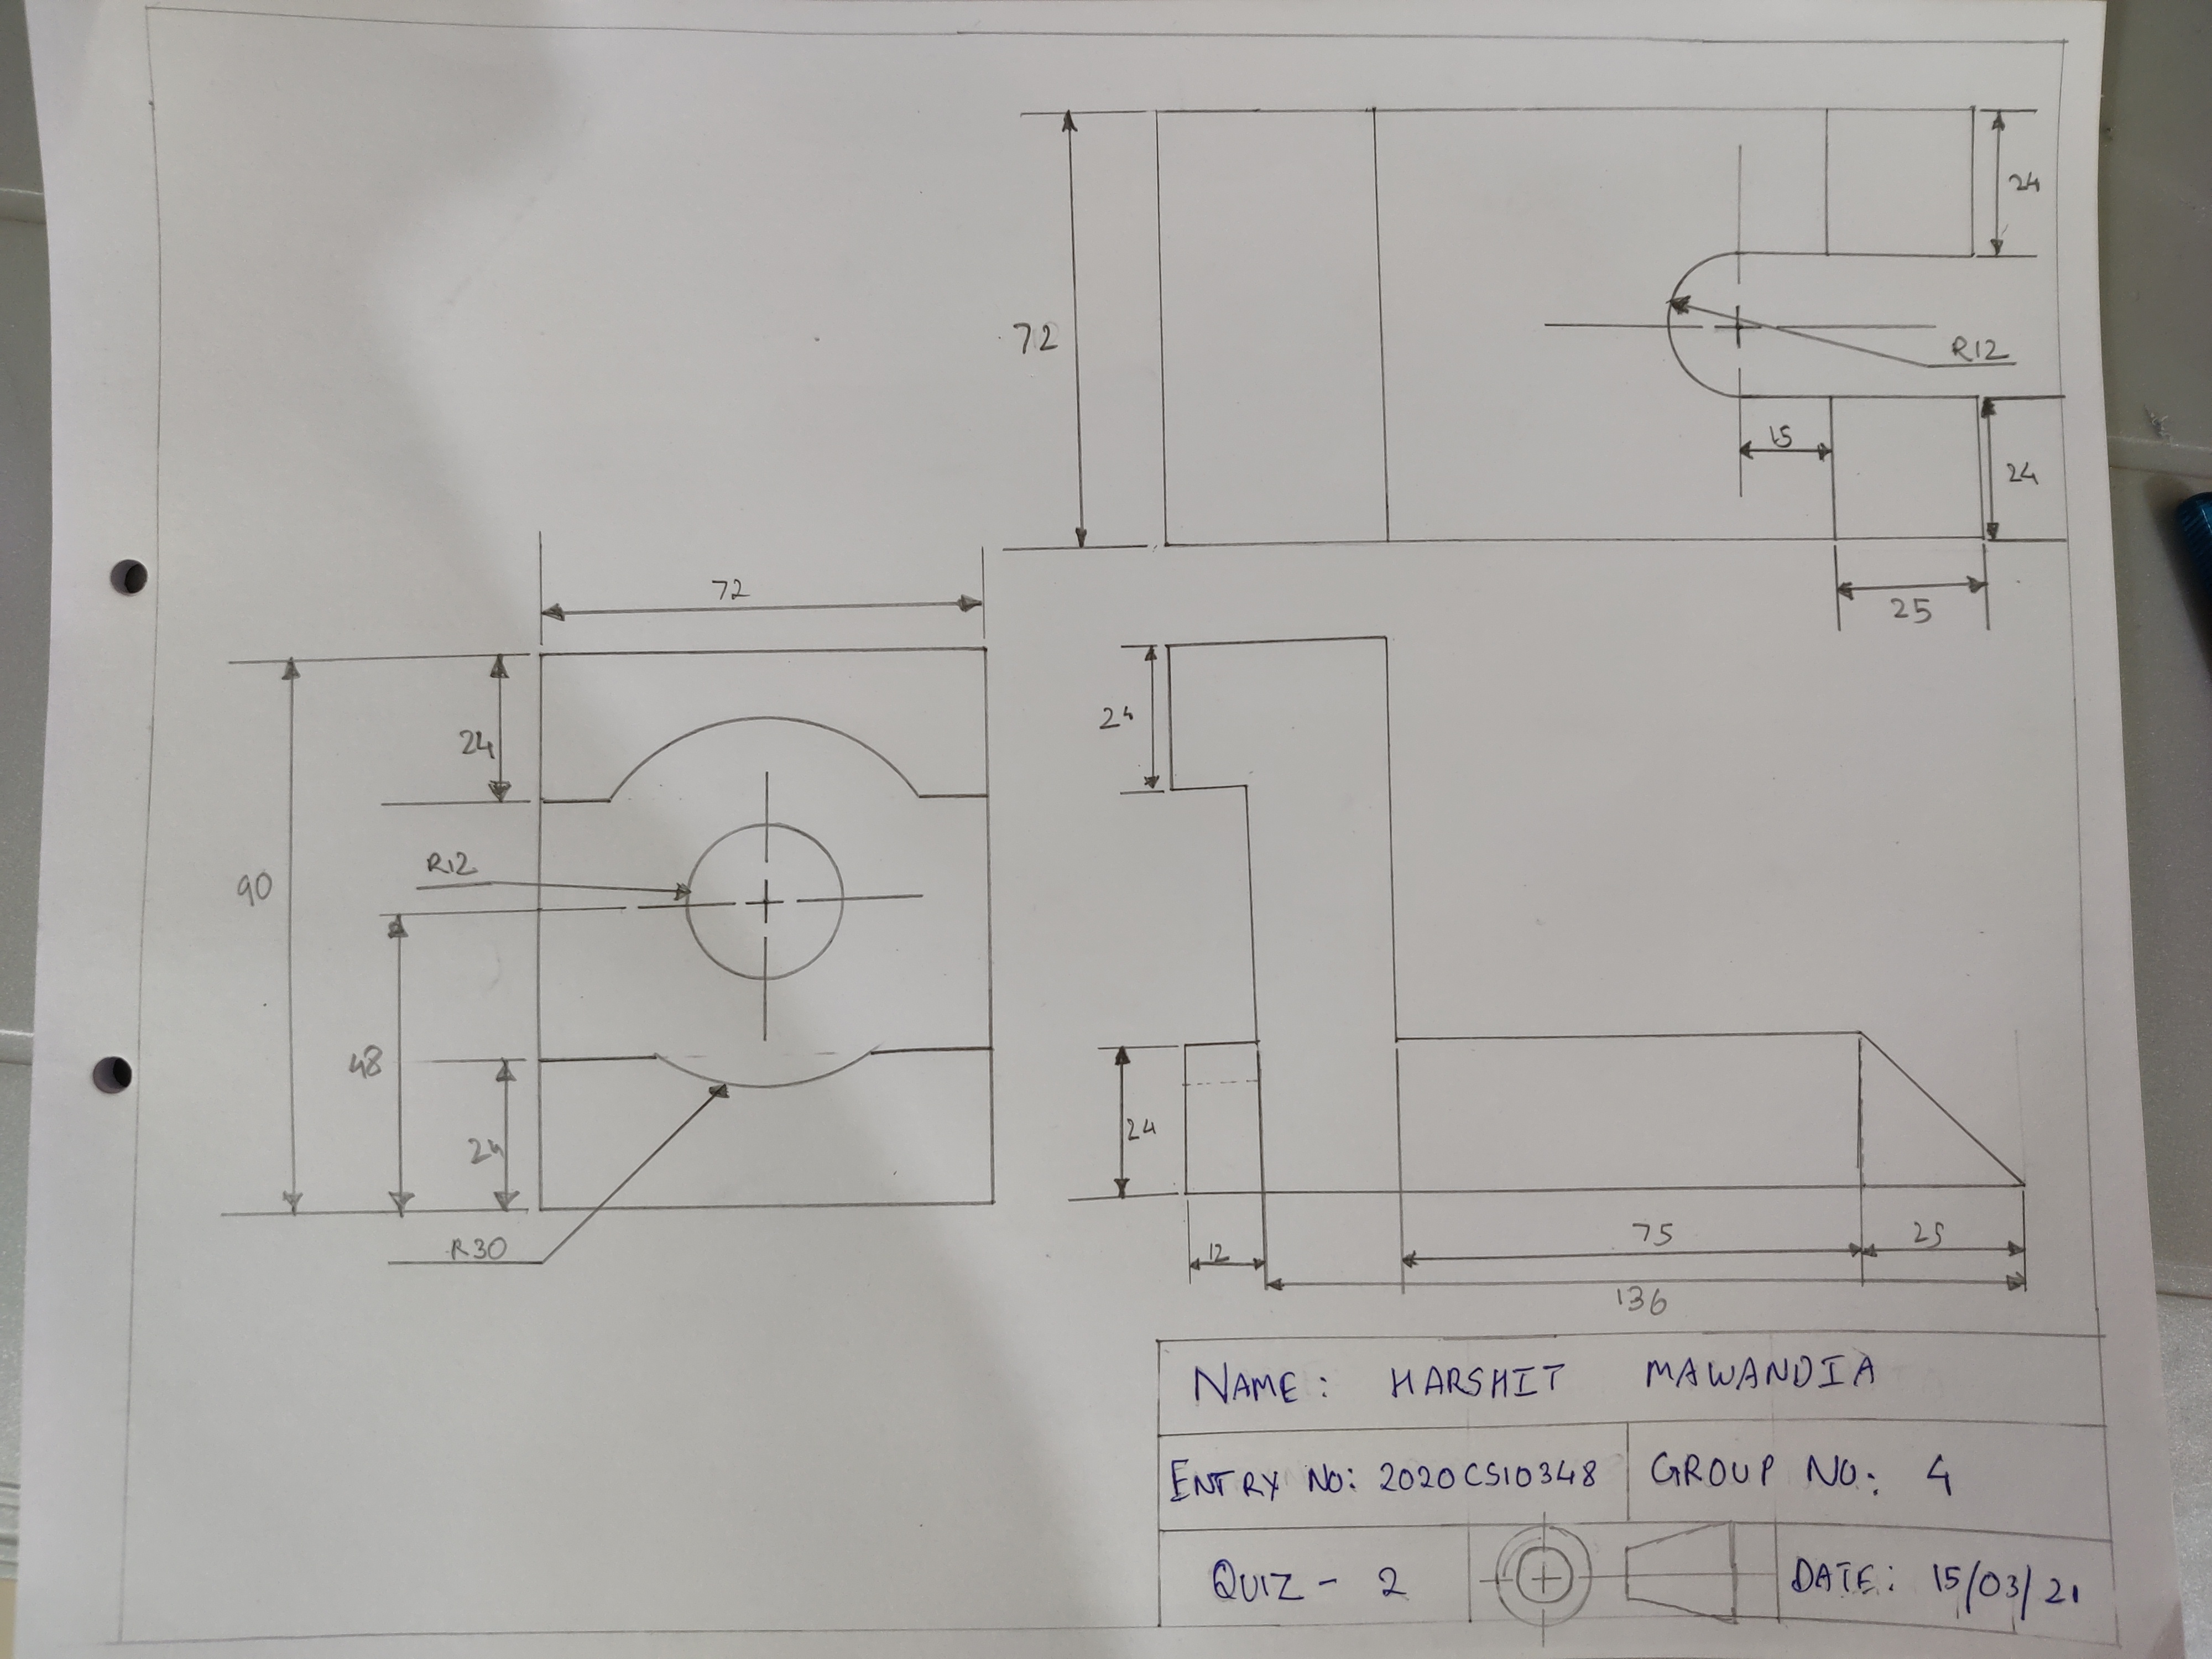 24
72
R12
15
24
25
72
24
24
R12
90
48
24
24
R30
12
75
25
136
NAME: HARSHIT MAWANDIA
ENTRY NO: 2020CS10348
GROUP NO: 4
QUIZ - 2
DATE: 15/03/21